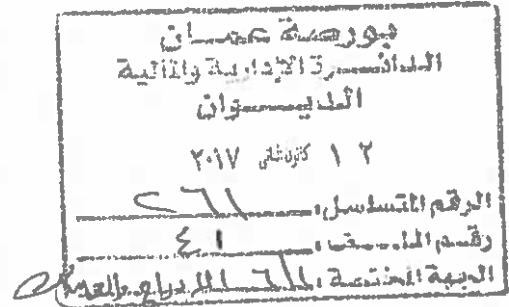 بورصة عمان
الدائرة الإدارية والمالية
الديوان
١٢ كانون ثاني ٢٠١٧
الرقم المتسلسل: ٢٦١
رقم الملف: ٤١
الجهة المختصة: